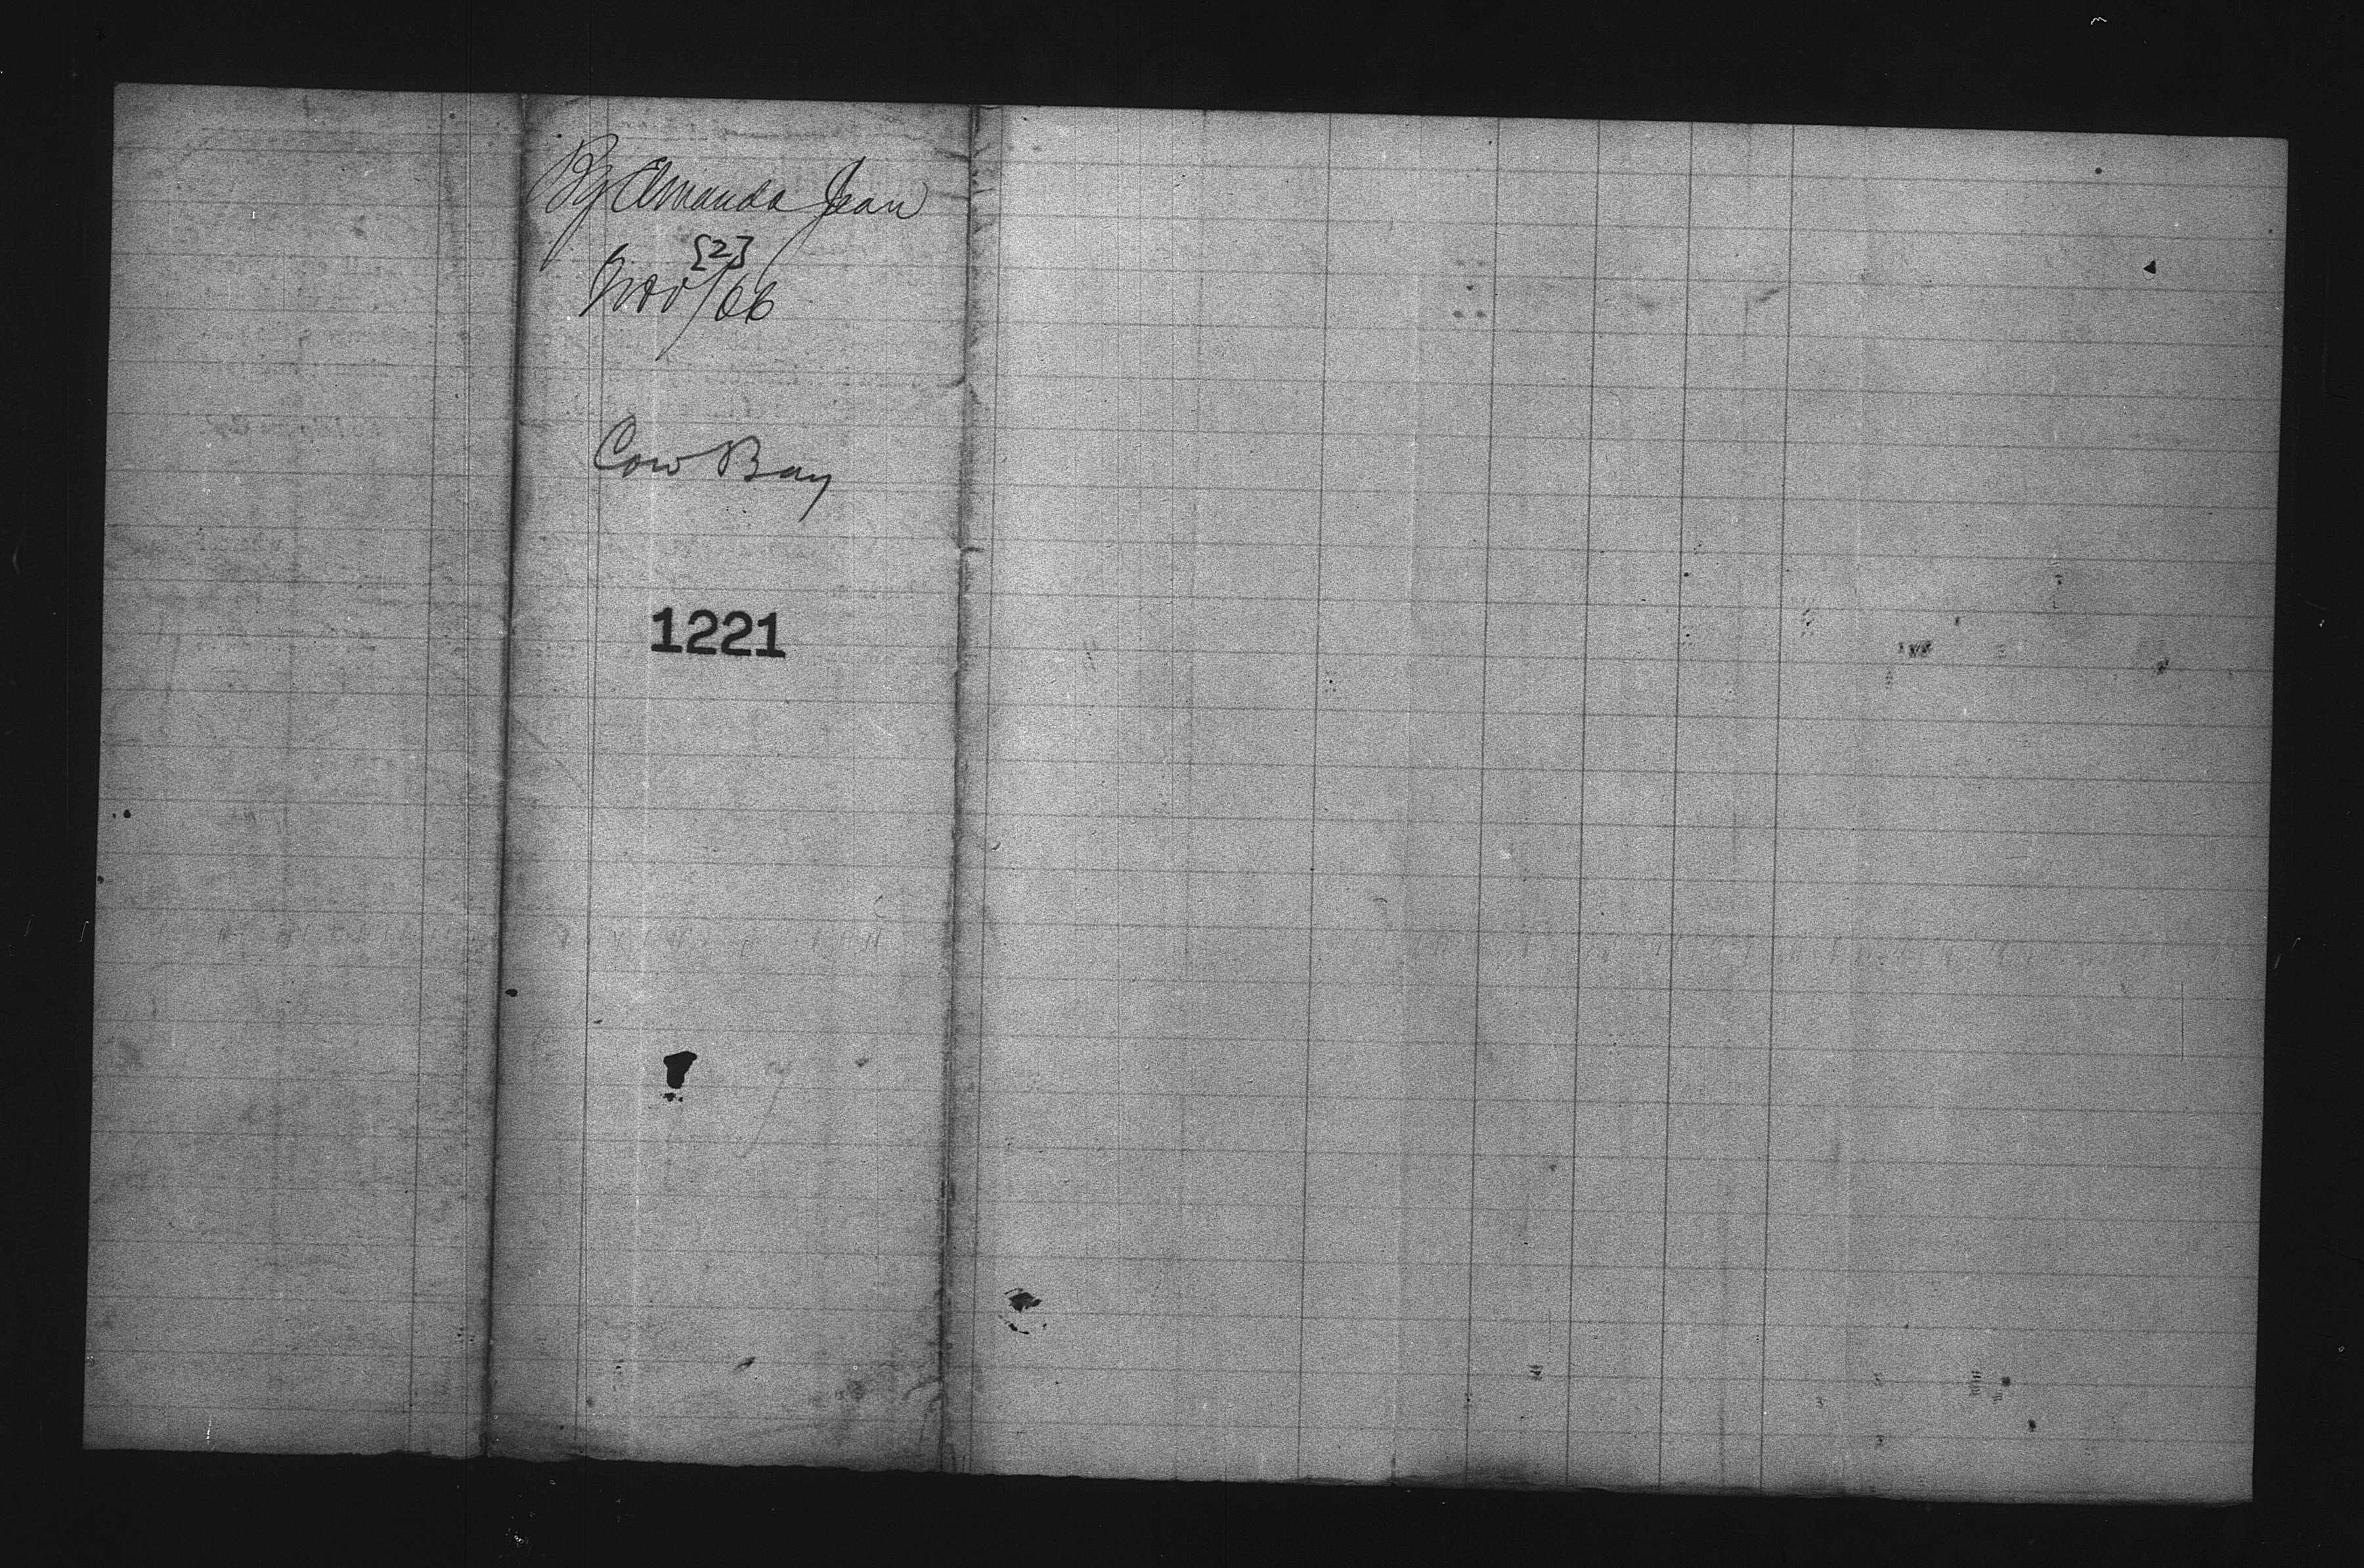 Bg Amanda Jean
[2]
Nov/66
Cow Bay
1221